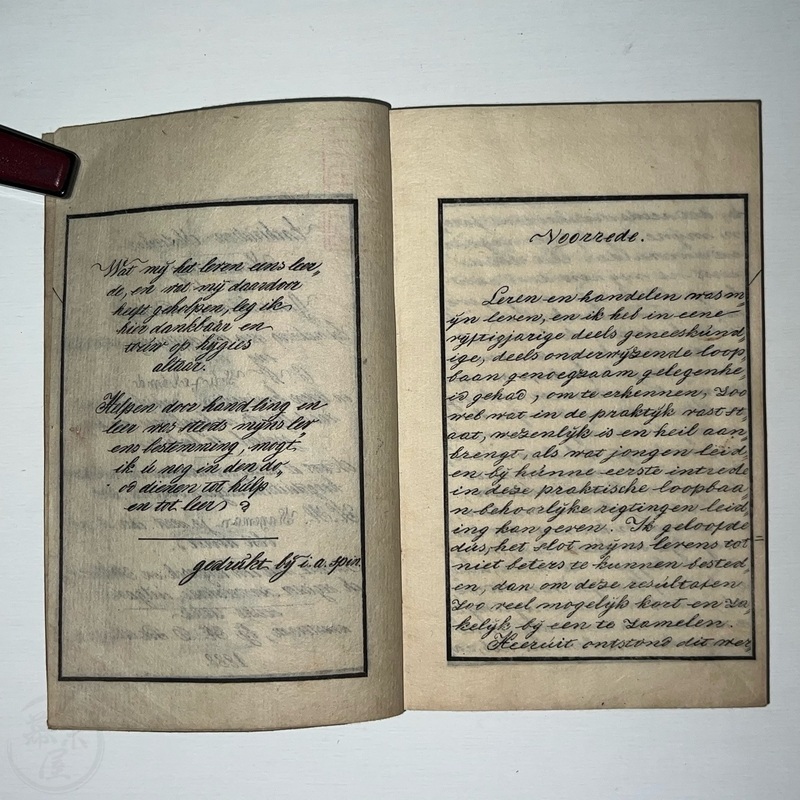 Wat mij het leren eens leer„
de, en wat mij daardoor
heeft geholpen, leg ik
hier dankbaar en
trúw op hygies
altaar.
Hulpen door handling en
leer was steets mijns lev„
ens bestemming, mogt
ik u nog in den do„
od dienen tot húlp
en tot leer,
gedrúkt bij i. a. spin.
Voorrede.
Leren en handelen was m
ijn leven, en ik heb in eene
vijftigjarige deels geneeskúnd
ige, deels onderwijzende loop
baan genoegzaam gelegenhe
id gehad, om te erkennen, zoo
wel wat in de praktijk vast st
aat, wezenlijk is en heil aan
brengt, als wat jongen leid
en bij húnne eerste intrede
in deze praktische loopbaa
n behoorlijke rigtingen leid
ing kan geven. Ik geloofde
dús, het slot mijns levens tot
niet beters te kúnnen bested
en, dan om deze resúltaten
zoo veel mogelijk kort en za
kelijk bij een te zamelen.
Hierúit ontstond dit wer„
1838